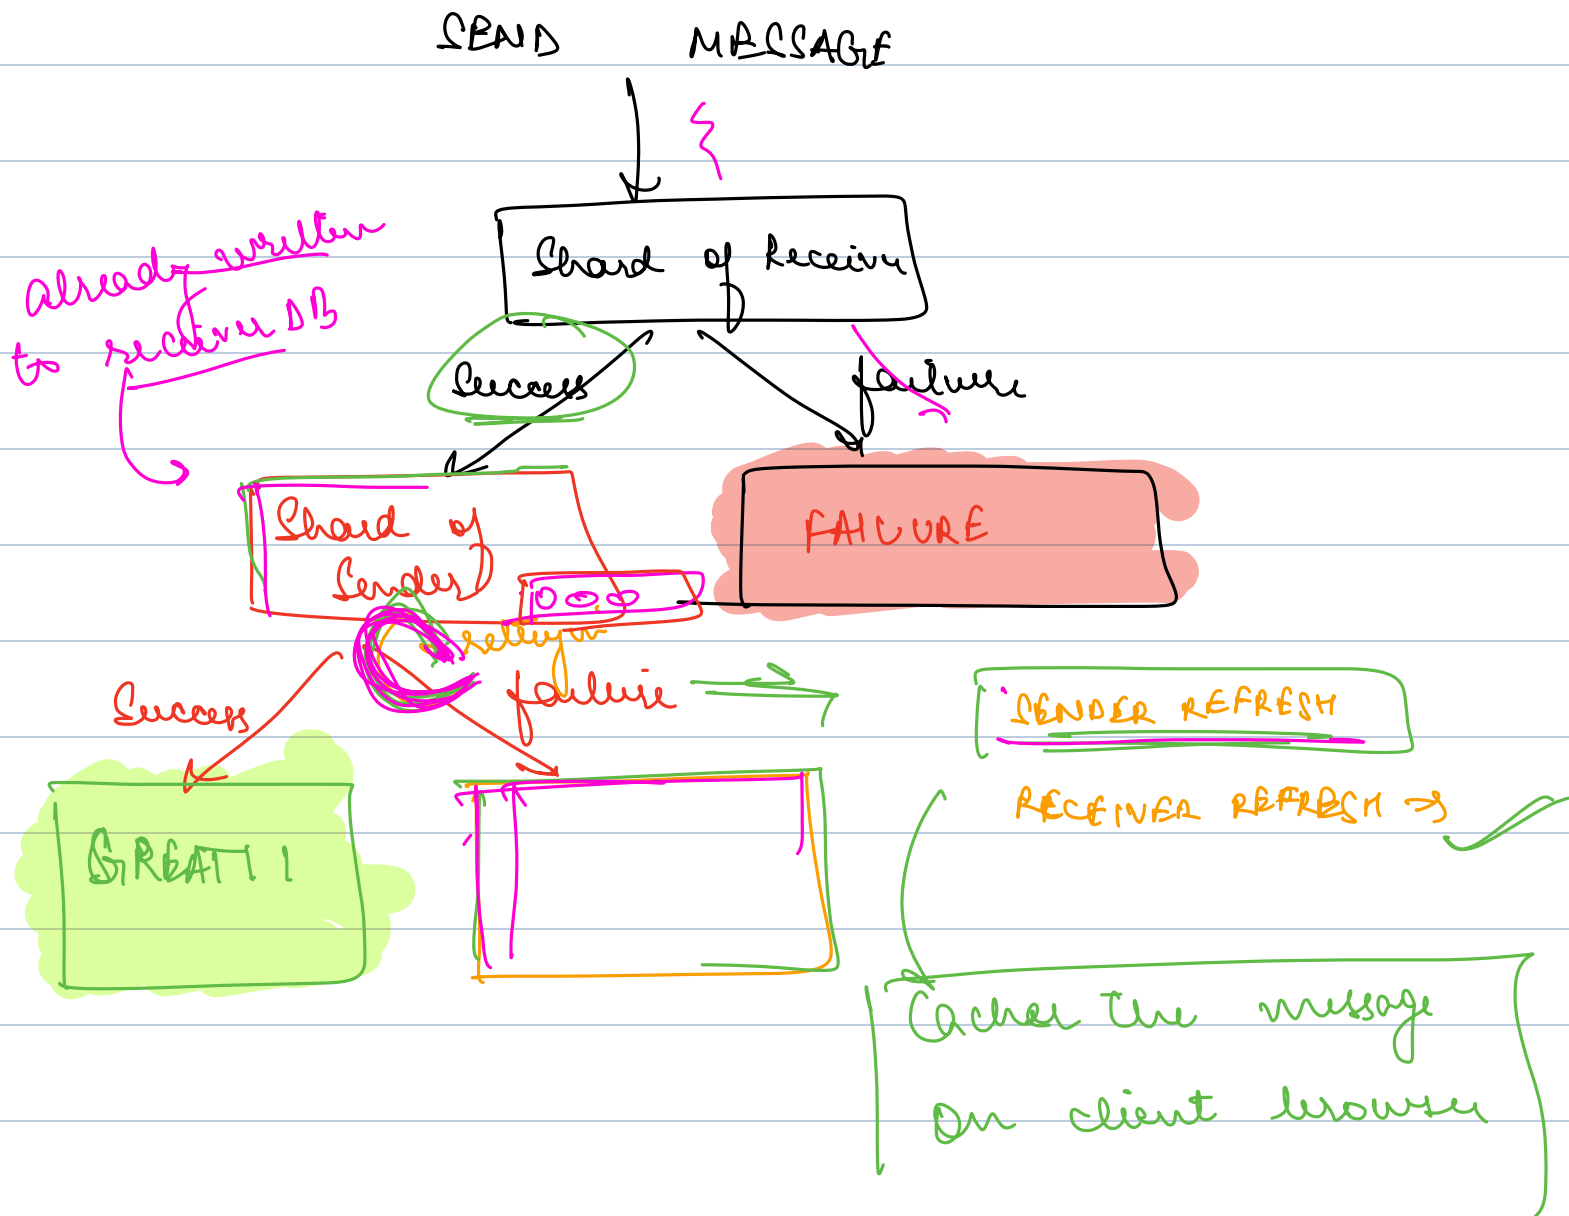 SEND MESSAGE
Shard of Receiver
already written
to receiver DB
Success
failure
Shard of
Sender
FAILURE
retrying
Success
failure
SENDER REFRESH
RECEIVER REFRESH →
GREAT!!
Caches the message
on client browser